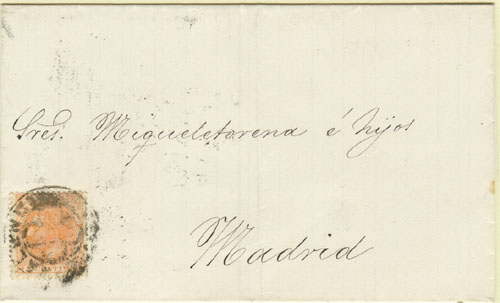 Sres. Miqueletorena é hijos
Madrid